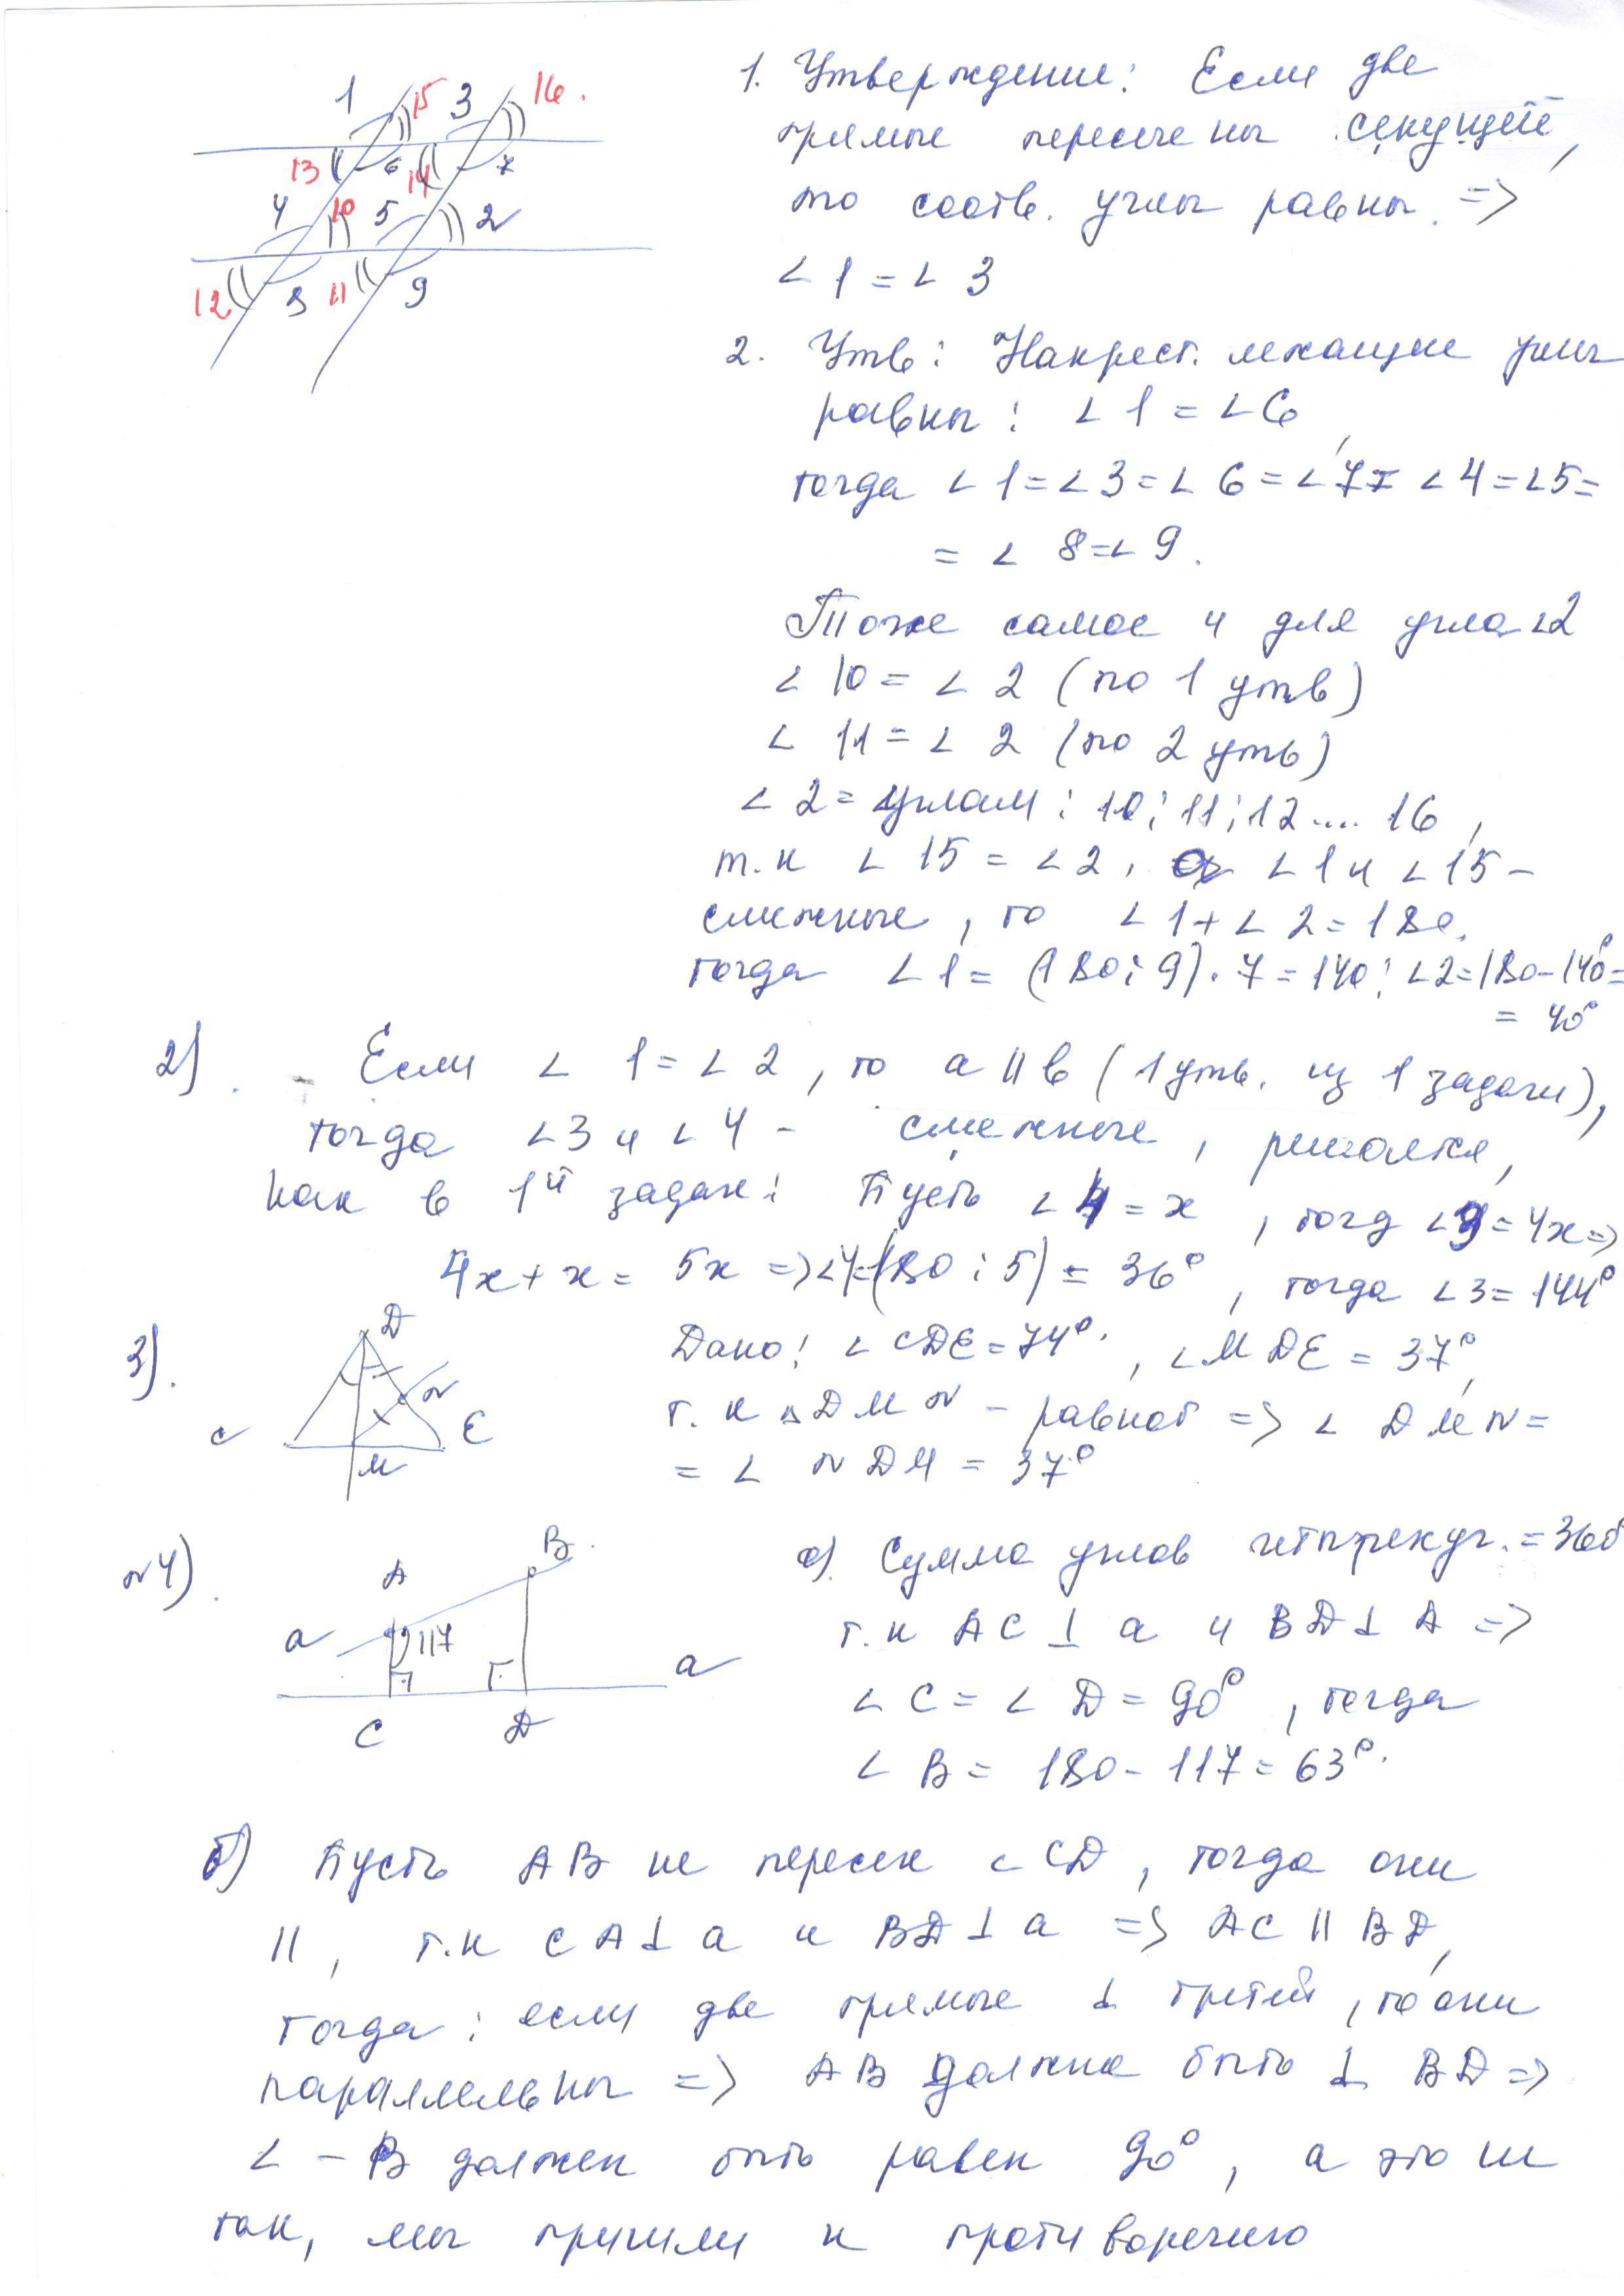 1 15 3 16.
13 6 14 7
4 10 5 2
12 8 11 9
1. Утверждение: Если две
прямые пересечены секущей,
то соотв. углы равны. =>
∠ 1 = ∠ 3
2. Утв: Накрест. лежащие углы
равны: ∠ 1 = ∠ 6,
тогда ∠ 1 = ∠ 3 = ∠ 6 = ∠ 7 = ∠ 4 = ∠5 =
= ∠ 8 = ∠ 9.
Тоже самое и для угла ∠2
∠ 10 = ∠ 2 (по 1 утв)
∠ 11 = ∠ 2 (по 2 утв)
∠ 2 = углам: 10; 11; 12 .... 16,
т.к ∠ 15 = ∠ 2, а ∠ 1 и ∠ 15 -
смежные, то ∠ 1 + ∠ 2 = 180.
тогда ∠ 1 = (180 : 9) · 7 = 140; ∠2 = 180 - 140° =
= 40°
2). Если ∠ 1 = ∠ 2, то a || b (1 утв. из 1 задачи),
тогда ∠3 и ∠ 4 - смежные, решается,
как в 1й задаче: Пусть ∠ 4 = x, тогд ∠3 = 4x =>
4x + x = 5x => ∠4 = (180 : 5) = 36°, тогда ∠3 = 144°
3). D N C E M
Дано: ∠ CDE = 74°, ∠ MDE = 37°,
т. к ΔDMN - равноб => ∠ DMN =
= ∠ NDM = 37°
N4). A B a 117 a C D
а). Сумма углов четырехуг. = 360
т.к AC ⊥ a и BD ⊥ A =>
∠ C = ∠ D = 90°, тогда
∠ B = 180 - 117 = 63°.
б) Пусть AB не пересек ∠ CD, тогда они
||, т.к CA ⊥ a и BD ⊥ a => AC || BD,
тогда: если две прямые ⊥ третей, то они
параллельны => AB должна быть ⊥ BD =>
∠ - B должен быть равен 90°, а это не
так, мы пришли к противоречию